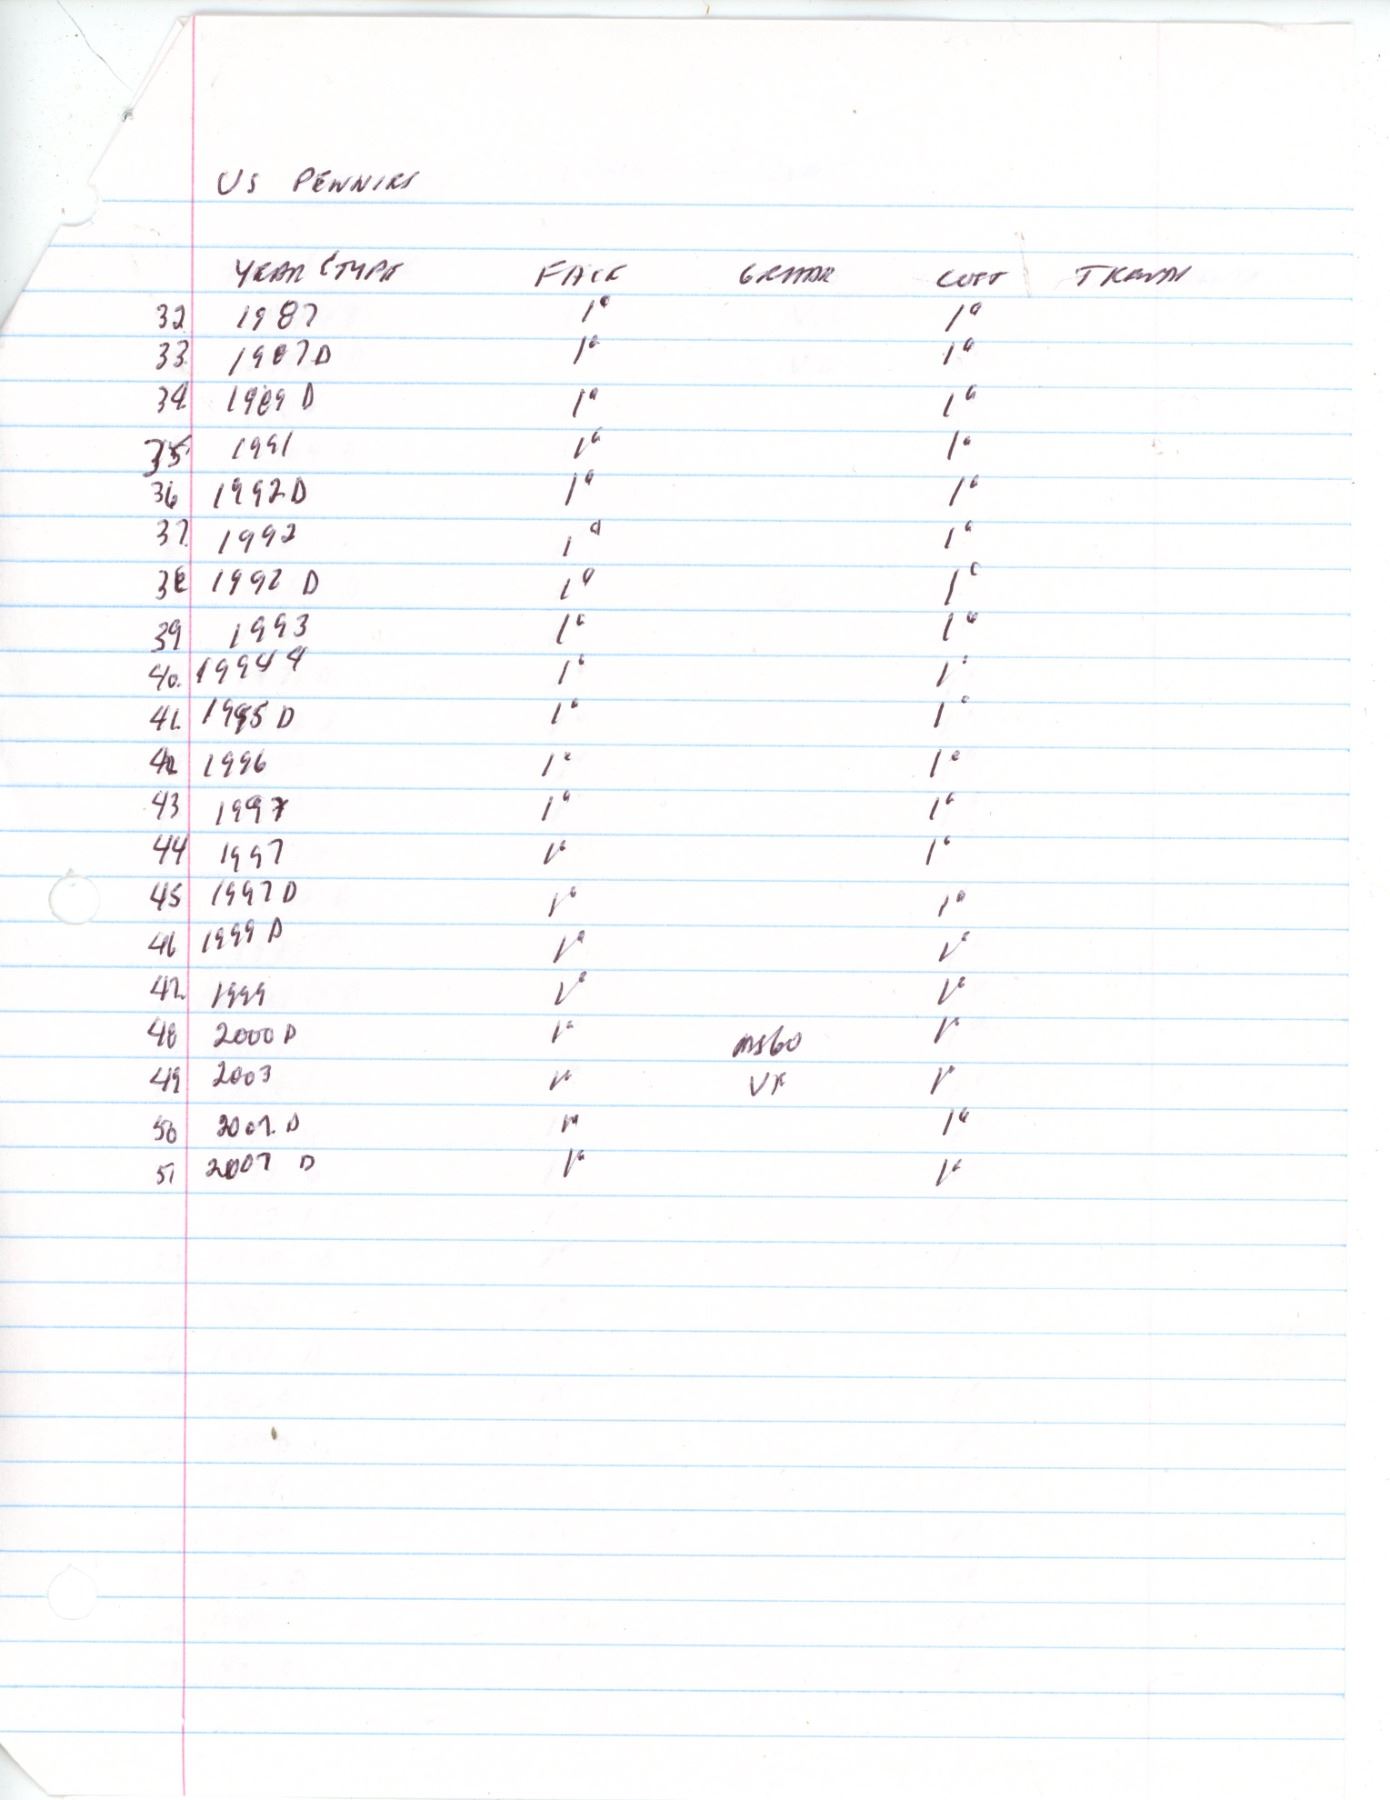 US PENNIES
YEAR & TYPE FACE GRADE COST TREND
32 1987 1¢ 1¢
33. 1987 D 1¢ 1¢
34 1989 D 1¢ 1¢
35 1991 1¢ 1¢
36 1992 D 1¢ 1¢
37. 1992 1¢ 1¢
38 1992 D 1¢ 1¢
39 1993 1¢ 1¢
40. 1994 1¢ 1¢
41. 1995 D 1¢ 1¢
42 1996 1¢ 1¢
43 1997 1¢ 1¢
44 1997 1¢ 1¢
45 1997 D 1¢ 1¢
46 1999 D 1¢ 1¢
47. 1999 1¢ 1¢
48 2000 D 1¢ MS60 1¢
49 2003 1¢ 1¢
50 D 1¢ 1¢
51 2007 D 1¢ 1¢